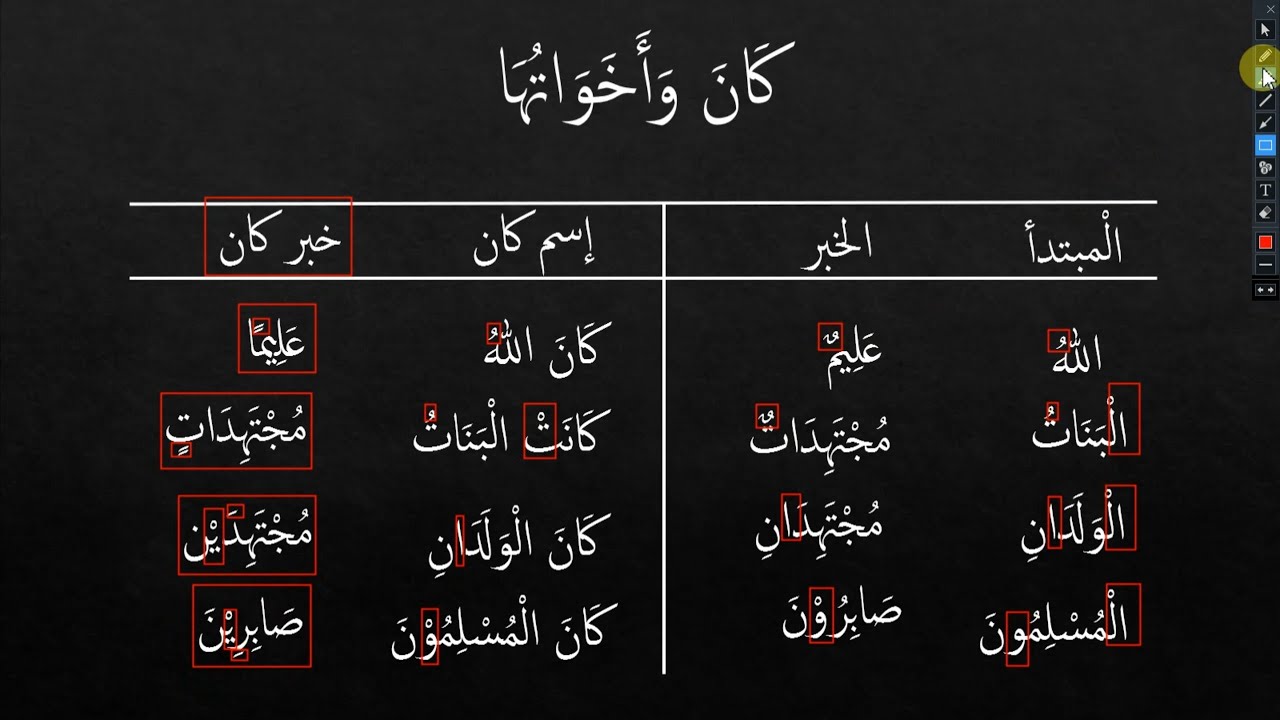 كَانَ وَأَخَوَاتُهَا
الْمبتدأ الخبر إسم كان خبر كان
اللهُ عَلِيمٌ كَانَ اللهُ عَلِيمًا
الْبَنَاتُ مُجْتَهِدَاتٌ كَانَتْ الْبَنَاتُ مُجْتَهِدَاتٍ
الْوَلَدَانِ مُجْتَهِدَانِ كَانَ الْوَلَدَانِ مُجْتَهِدَيْن
الْمُسْلِمُونَ صَابِرُوْنَ كَانَ الْمُسْلِمُوْنَ صَابِرِيْنَ